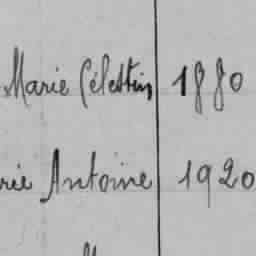 Marie Célestin 1880
rie Antoine 1920